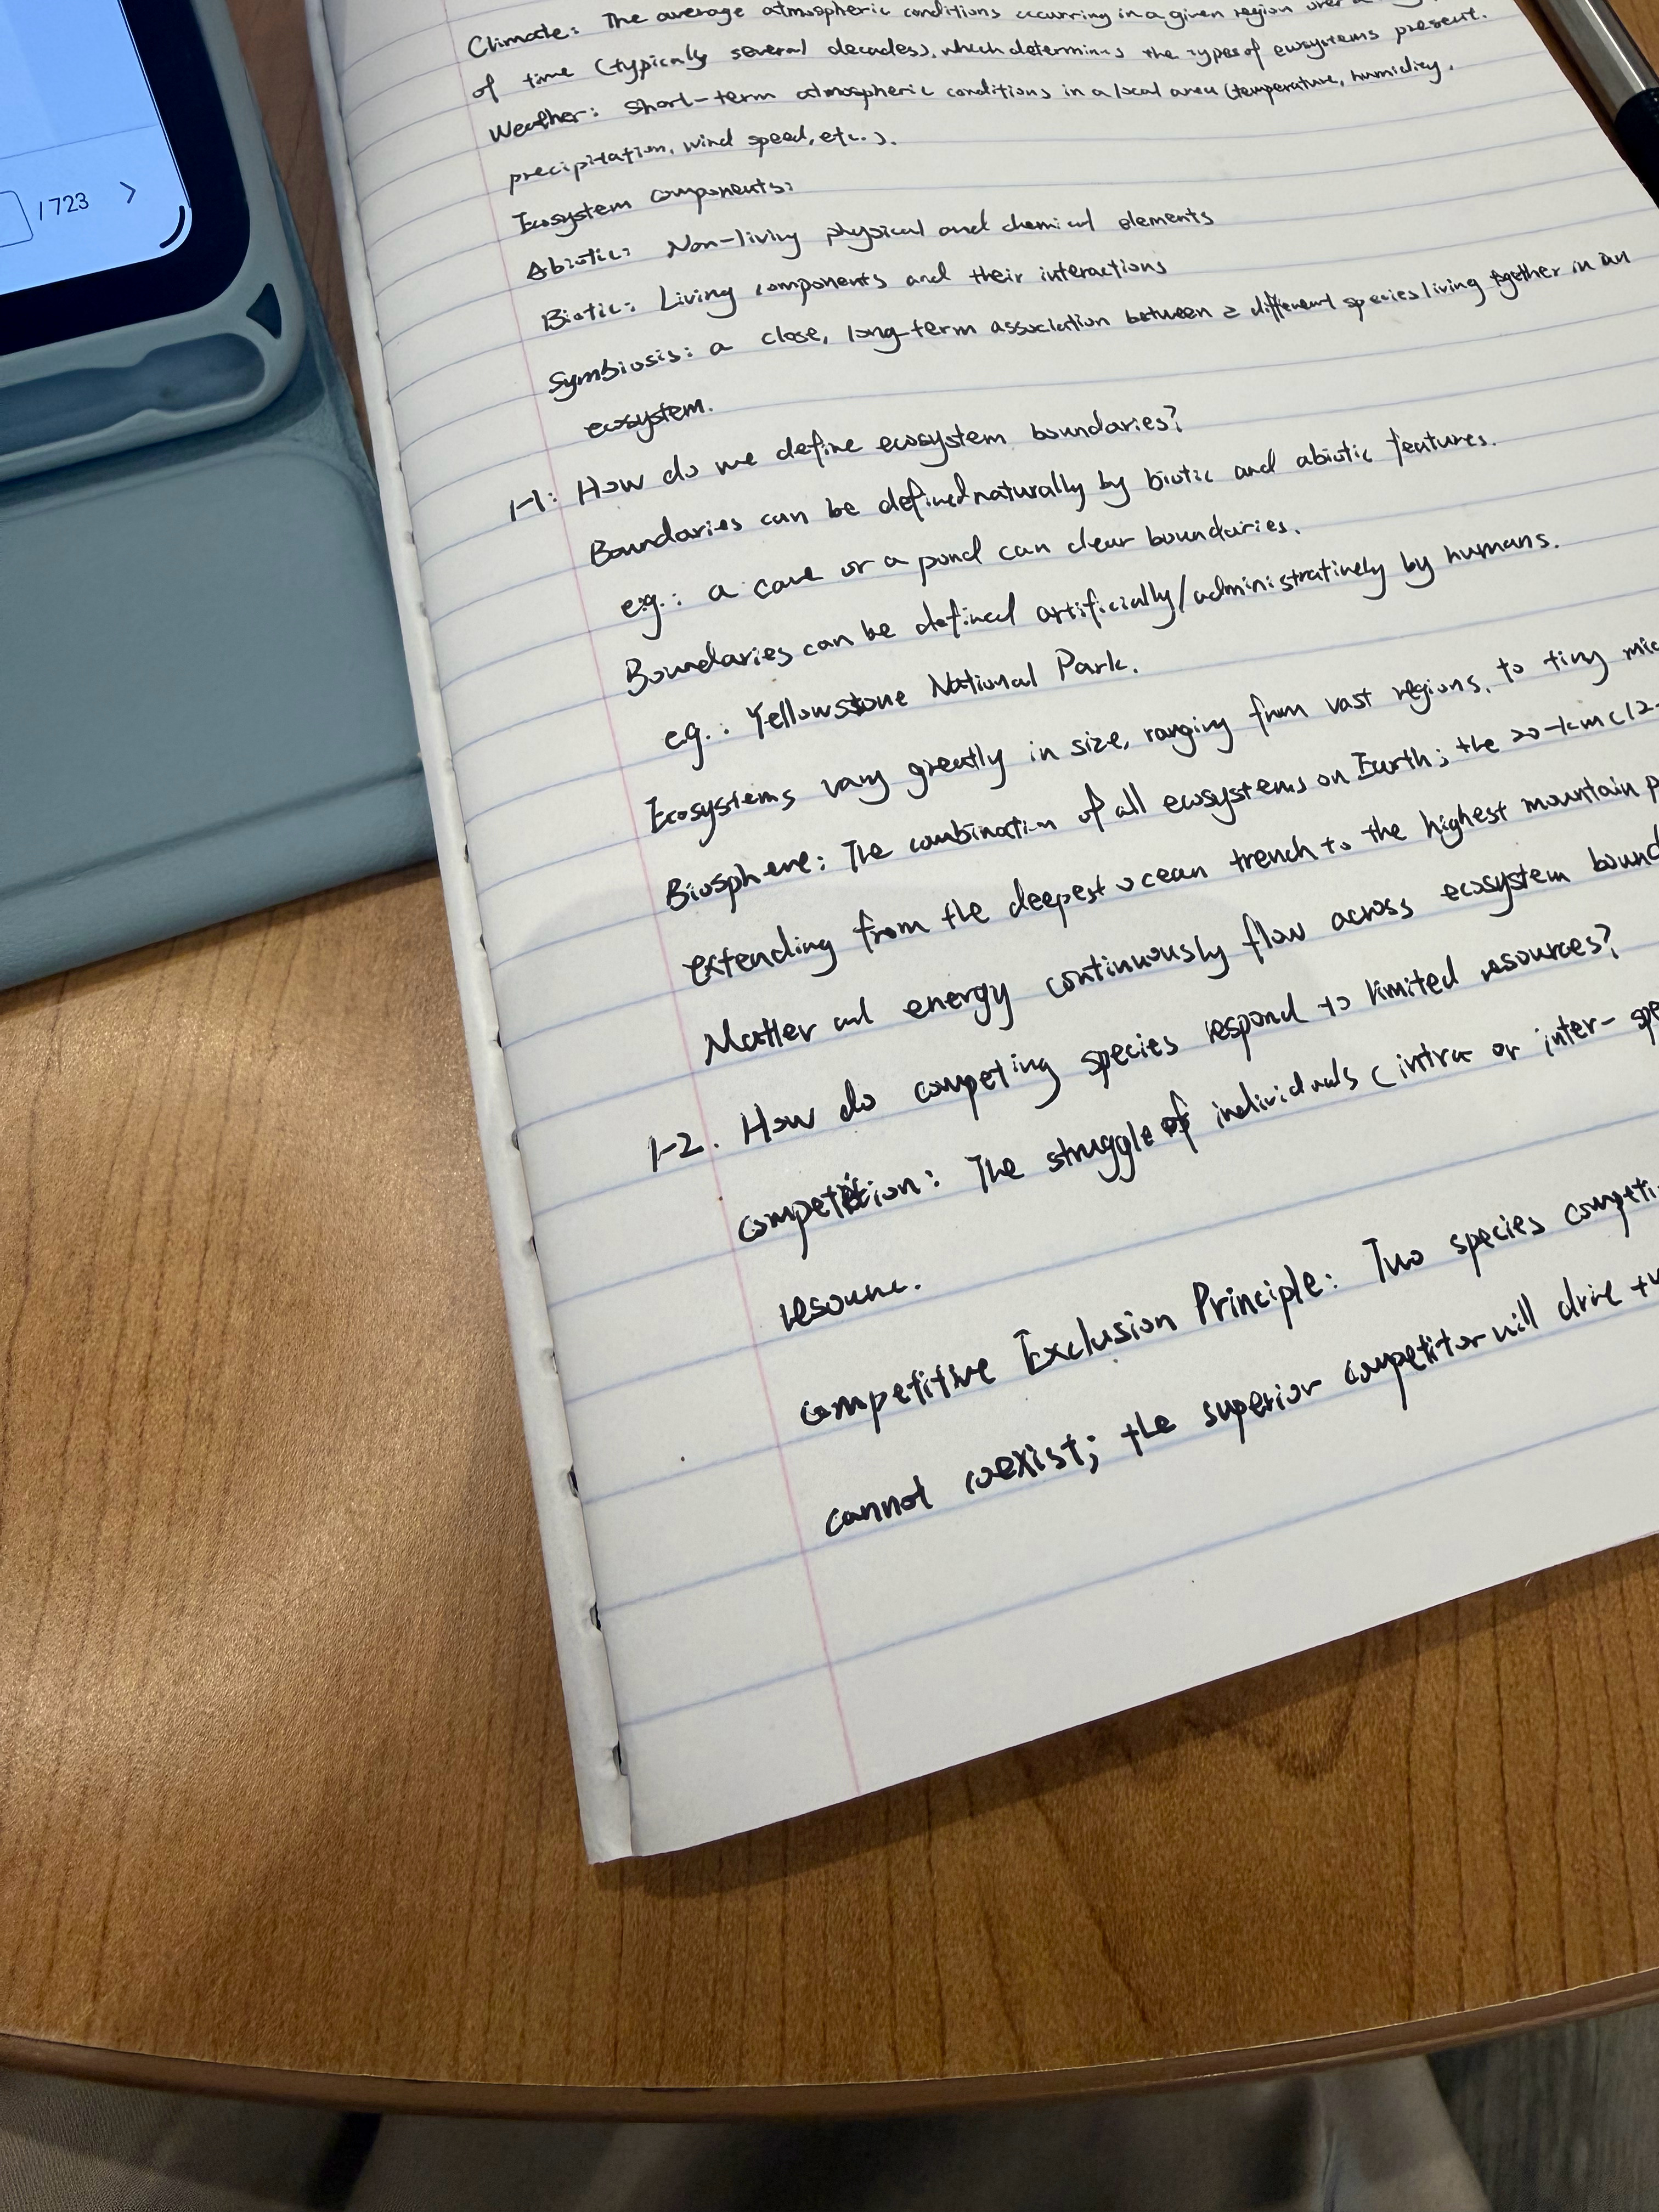 / 723 >
Climate: The average atmospheric conditions occurring in a given region over a
of time (typically several decades), which determines the types of ecosystems present.
Weather: Short-term atmospheric conditions in a local area (temperature, humidity,
precipitation, wind speed, etc.).
Ecosystem components:
Abiotic: Non-living physical and chemical elements
Biotic: Living components and their interactions
Symbiosis: a close, long-term association between 2 different species living together in an
ecosystem.
1-1: How do we define ecosystem boundaries?
Boundaries can be defined naturally by biotic and abiotic features.
e.g.: a cave or a pond can clear boundaries.
Boundaries can be defined artificially/administratively by humans.
e.g.: Yellowstone National Park.
Ecosystems vary greatly in size, ranging from vast regions, to tiny mic
Biosphere: The combination of all ecosystems on Earth; the 20-km (12-
extending from the deepest ocean trench to the highest mountain p
Matter and energy continuously flow across ecosystem bound
1-2. How do competing species respond to limited resources?
competition: The struggle of individuals (intra or inter-spe
resource.
competitive Exclusion Principle: Two species competi
cannot coexist; the superior competitor will drive